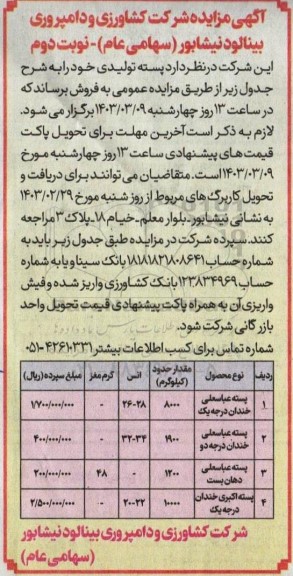 آگهی مزایده شرکت کشاورزی و دامپروری
بینالود نیشابور (سهامی عام) - نوبت دوم
این شرکت در نظر دارد پسته تولیدی خود را به شرح
جدول زیر از طریق مزایده عمومی به فروش برساند که
در ساعت ۱۳ روز چهارشنبه ۱۴۰۳/۰۳/۰۹ برگزار می شود.
لازم به ذکر است آخرین مهلت برای تحویل پاکت
قیمت های پیشنهادی ساعت ۱۳ روز چهارشنبه مورخ
۱۴۰۳/۰۳/۰۹ است. متقاضیان می توانند برای دریافت و
تحویل کاربرگ های مربوط از روز شنبه مورخ ۱۴۰۳/۰۲/۲۹
به نشانی نیشابور _ بلوار معلم _ خیام ۱۸ _ پلاک ۳ مراجعه
کنند. سپرده شرکت در مزایده طبق جدول زیر باید به
شماره حساب ۱۸۱۸۱۸۲۱۸۰۸۶۴۱ بانک سینا و یا به شماره
حساب ۱۲۳۸۳۴۹۶۹ بانک کشاورزی واریز شده و فیش
واریزی آن به همراه پاکت پیشنهادی قیمت تحویل واحد
بازرگانی شرکت شود.
شماره تماس برای کسب اطلاعات بیشتر ۴۲۶۱۰۳۳۱-۰۵۱
ردیف نوع محصول مقدار حدود (کیلوگرم) انس گرم مغز مبلغ سپرده (ریال)
۱ پسته عباسعلی خندان درجه یک ۸۰۰۰ ۲۶-۲۸ - ۱/۷۰۰/۰۰۰/۰۰۰
۲ پسته عباسعلی خندان درجه دو ۱۹۰۰ ۳۲-۳۴ - ۴۰۰/۰۰۰/۰۰۰
۳ پسته عباسعلی دهان بست ۱۲۰۰ - ۴۸ ۲۰۰/۰۰۰/۰۰۰
۴ پسته اکبری خندان درجه یک ۱۰۰۰۰ ۲۰-۲۲ - ۲/۵۰۰/۰۰۰/۰۰۰
شرکت کشاورزی و دامپروری بینالود نیشابور
(سهامی عام)